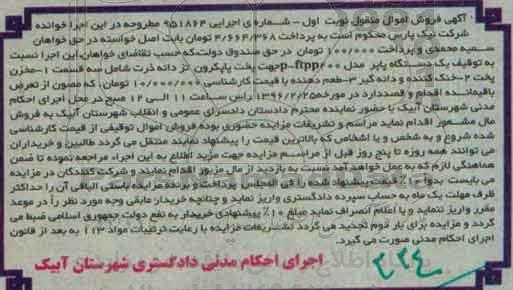 آگهی فروش اموال منقول نوبت اول - شماره ی اجرایی ۹۵۱۸۶۴ مطروحه در این اجرا خوانده
شرکت نیک پارس محکوم است به پرداخت ۴/۶۶۴/۳۶۸ تومان بابت اصل خواسته در حق خواهان
سمیه محمدی و پرداخت ۱۰۰/۰۰۰ تومان در حق صندوق دولت که حسب تقاضای خواهان، این اجرا نسبت
به توقیف یک دستگاه پاپر مدل p-ftpp۲۰۰ جهت پخت پاپکورن تر دانه ذرت شامل سه قسمت ۱-مخزن
پخت ۲-خنک کننده و دانه گیر ۳-طعم دهنده با قیمت کارشناسی ۱۰/۰۰۰/۰۰۰ تومان که مصون از تعرض
باقیمانده اقدام و قصد دارد در مورخه ۱۳۹۶/۲/۲۵ راس ساعت ۱۱ الی ۱۲ صبح در محل اجرای احکام
مدنی شهرستان آبیک با حضور نماینده محترم دادستان دادسرای عمومی و انقلاب شهرستان آبیک به فروش
مال مشهور اقدام نماید مراسم و تشریفات مزایده حضوری بوده فروش اموال توقیفی از قیمت کارشناسی
شده شروع و به شخص و یا اشخاص که بالاترین قیمت را پیشنهاد نمایند منتقل می گردد طالبین و خریداران
می توانند همه روزه تا پنج روز قبل از مراسم مزایده جهت مزید اطلاع به این اجراء مراجعه نموده تا ضمن
هماهنگی لازم که به عمل خواهد آمد نسبت به بازدید از مال مزبور اقدام نمایند و شرکت کنندگان در مزایده
می بایست بدوا ۱۰٪ قیمت پیشنهاد شده را فی المجلس پرداخت و برنده مزایده بایستی الباقی آن را حداکثر
ظرف مهلت یک ماه به حساب سپرده دادگستری واریز نماید و چنانچه خریدار مابقی وجه مورد نظر را در موعد
مقرر واریز ننماید و یا اعلام انصراف نماید مبلغ ۱۰٪ پیشنهادی خریدار به نفع دولت جمهوری اسلامی ضبط می
گردد و مزایده برای بار دوم تجدید می گردد تشریفات مزایده با رعایت ترتیبات مواد ۱۱۳ به بعد از قانون
اجرای احکام مدنی صورت می گیرد.
اجرای احکام مدنی دادگستری شهرستان آبیک